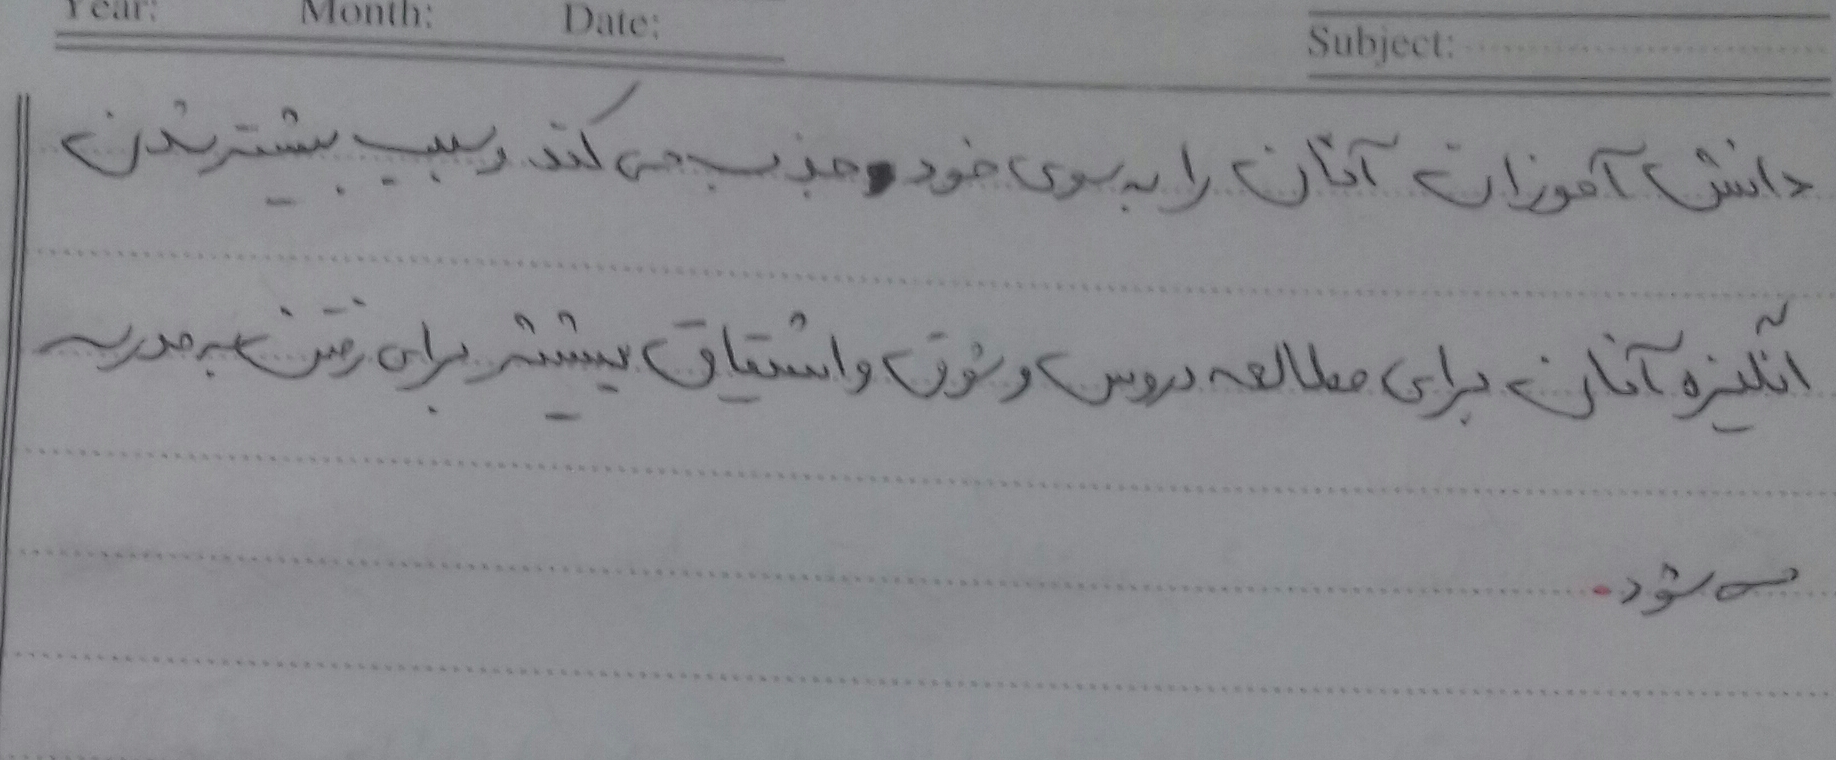 Year: Month: Date: Subject:
دانش آموزان آنان را به سوی خود جذب می کند و سبب بیشتر شدن
انگیزه آنان برای مطالعه دروس و شوق و اشتیاق بیشتر برای رفتن به مدرسه
می شود.